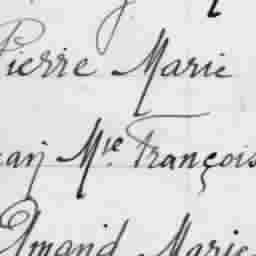 Pierre Marie
ean Mie François
Amand Marie